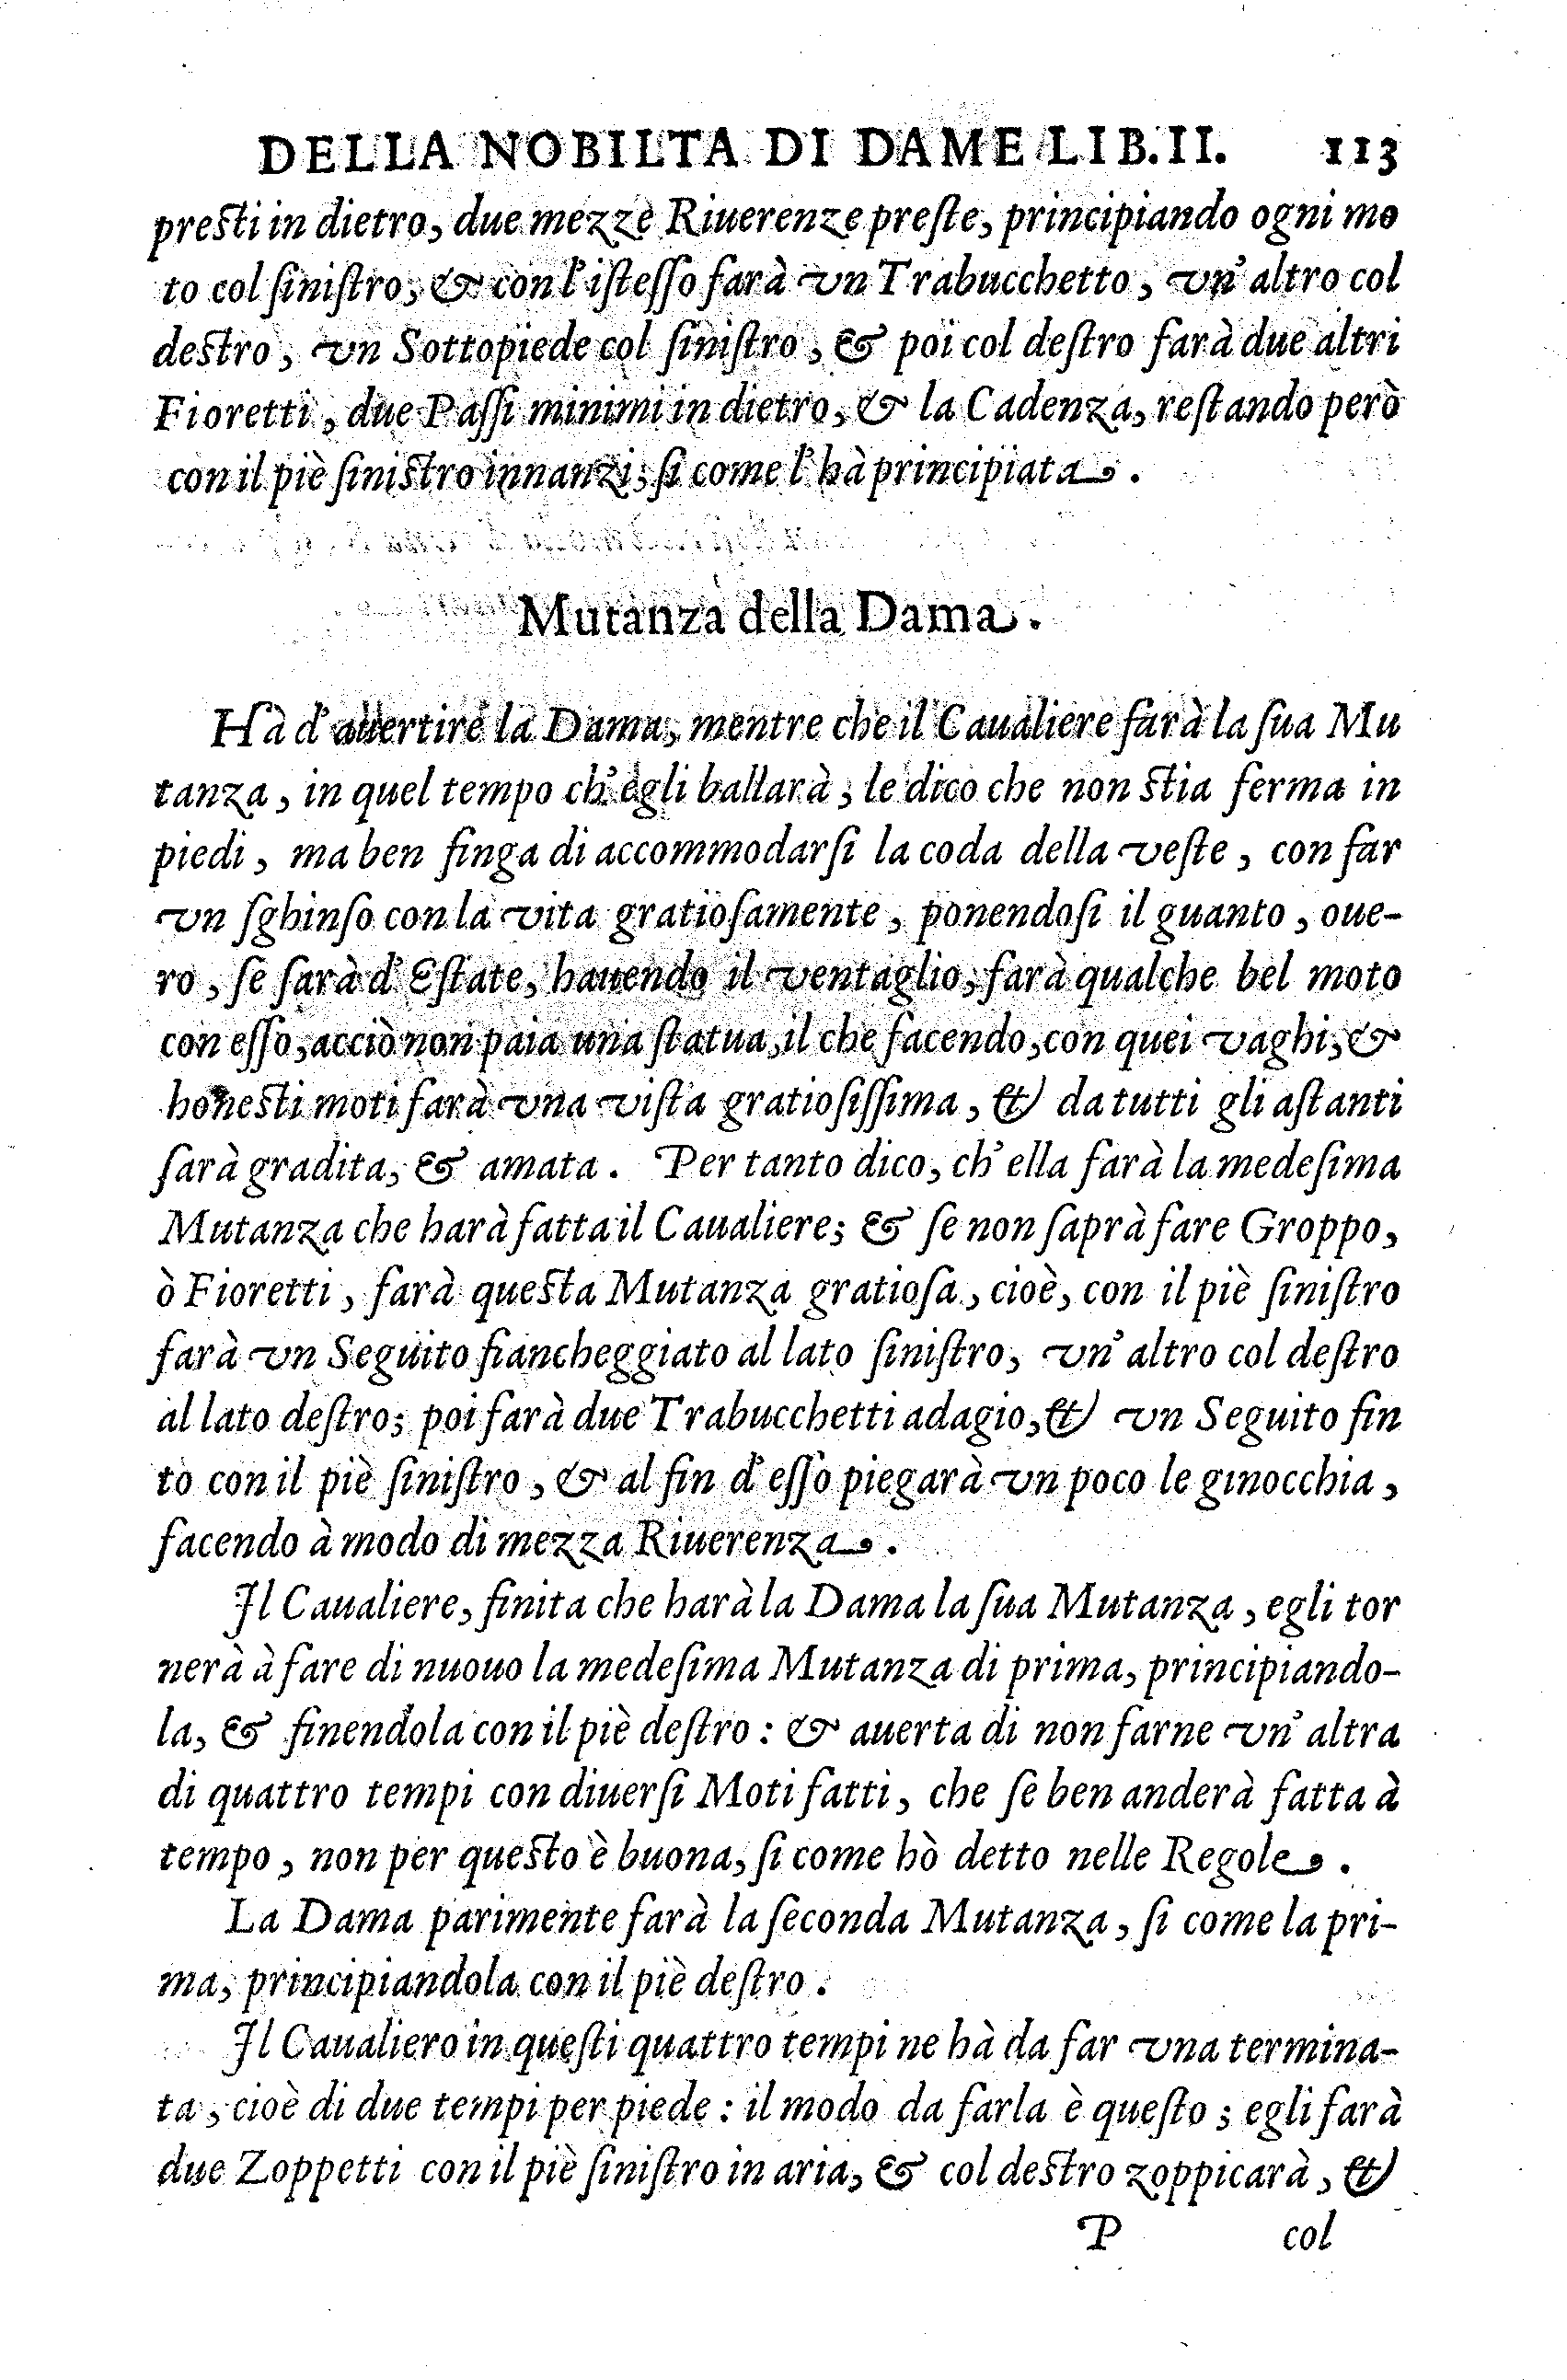 DELLA NOBILTA DI DAME LIB. II. 113
preſti in dietro, due mezze Riuerenze preſte, principiando ogni mo
to col ſiniſtro, & con l'iſteſſo farà vn Trabucchetto, vn'altro col
deſtro, vn Sottopiede col ſiniſtro, & poi col deſtro farà due altri
Fioretti, due Paſſi minimi in dietro, & la Cadenza, reſtando però
con il piè ſiniſtro innanzi; ſi come l'hà principiata.
Mutanza della Dama.
Hà d'auertire la Dama, mentre che il Caualiere farà la ſua Mu
tanza, in quel tempo ch'egli ballarà, le dico che non ſtia ferma in
piedi, ma ben finga di accommodarſi la coda della veſte, con far
vn ſghinſo con la vita gratioſamente, ponendoſi il guanto, oue-
ro, ſe ſarà d'Eſtate, hauendo il ventaglio, farà qualche bel moto
con eſſo, acciò non paia una ſtatua, il che facendo, con quei vaghi, &
honeſti moti farà vna viſta gratioſiſſima, & da tutti gli aſtanti
ſarà gradita, & amata. Per tanto dico, ch'ella farà la medeſima
Mutanza che harà fatta il Caualiere; & ſe non ſaprà fare Groppo,
ò Fioretti, farà queſta Mutanza gratioſa, cioè, con il piè ſiniſtro
farà vn Seguito fiancheggiato al lato ſiniſtro, vn'altro col deſtro
al lato deſtro; poi farà due Trabucchetti adagio, & vn Seguito fin
to con il piè ſiniſtro, & al fin d'eſſo piegarà vn poco le ginocchia,
facendo à modo di mezza Riuerenza.
Il Caualiere, finita che harà la Dama la ſua Mutanza, egli tor
nerà à fare di nuouo la medeſima Mutanza di prima, principiando-
la, & finendola con il piè deſtro: & auerta di non farne vn'altra
di quattro tempi con diuerſi Moti fatti, che ſe ben anderà fatta à
tempo, non per queſto è buona, ſi come hò detto nelle Regole.
La Dama parimente farà la ſeconda Mutanza, ſi come la pri-
ma, principiandola con il piè deſtro.
Il Caualiero in queſti quattro tempi ne hà da far vna termina-
ta, cioè di due tempi per piede: il modo da farla è queſto; egli farà
due Zoppetti con il piè ſiniſtro in aria, & col deſtro zoppicarà, &
P col